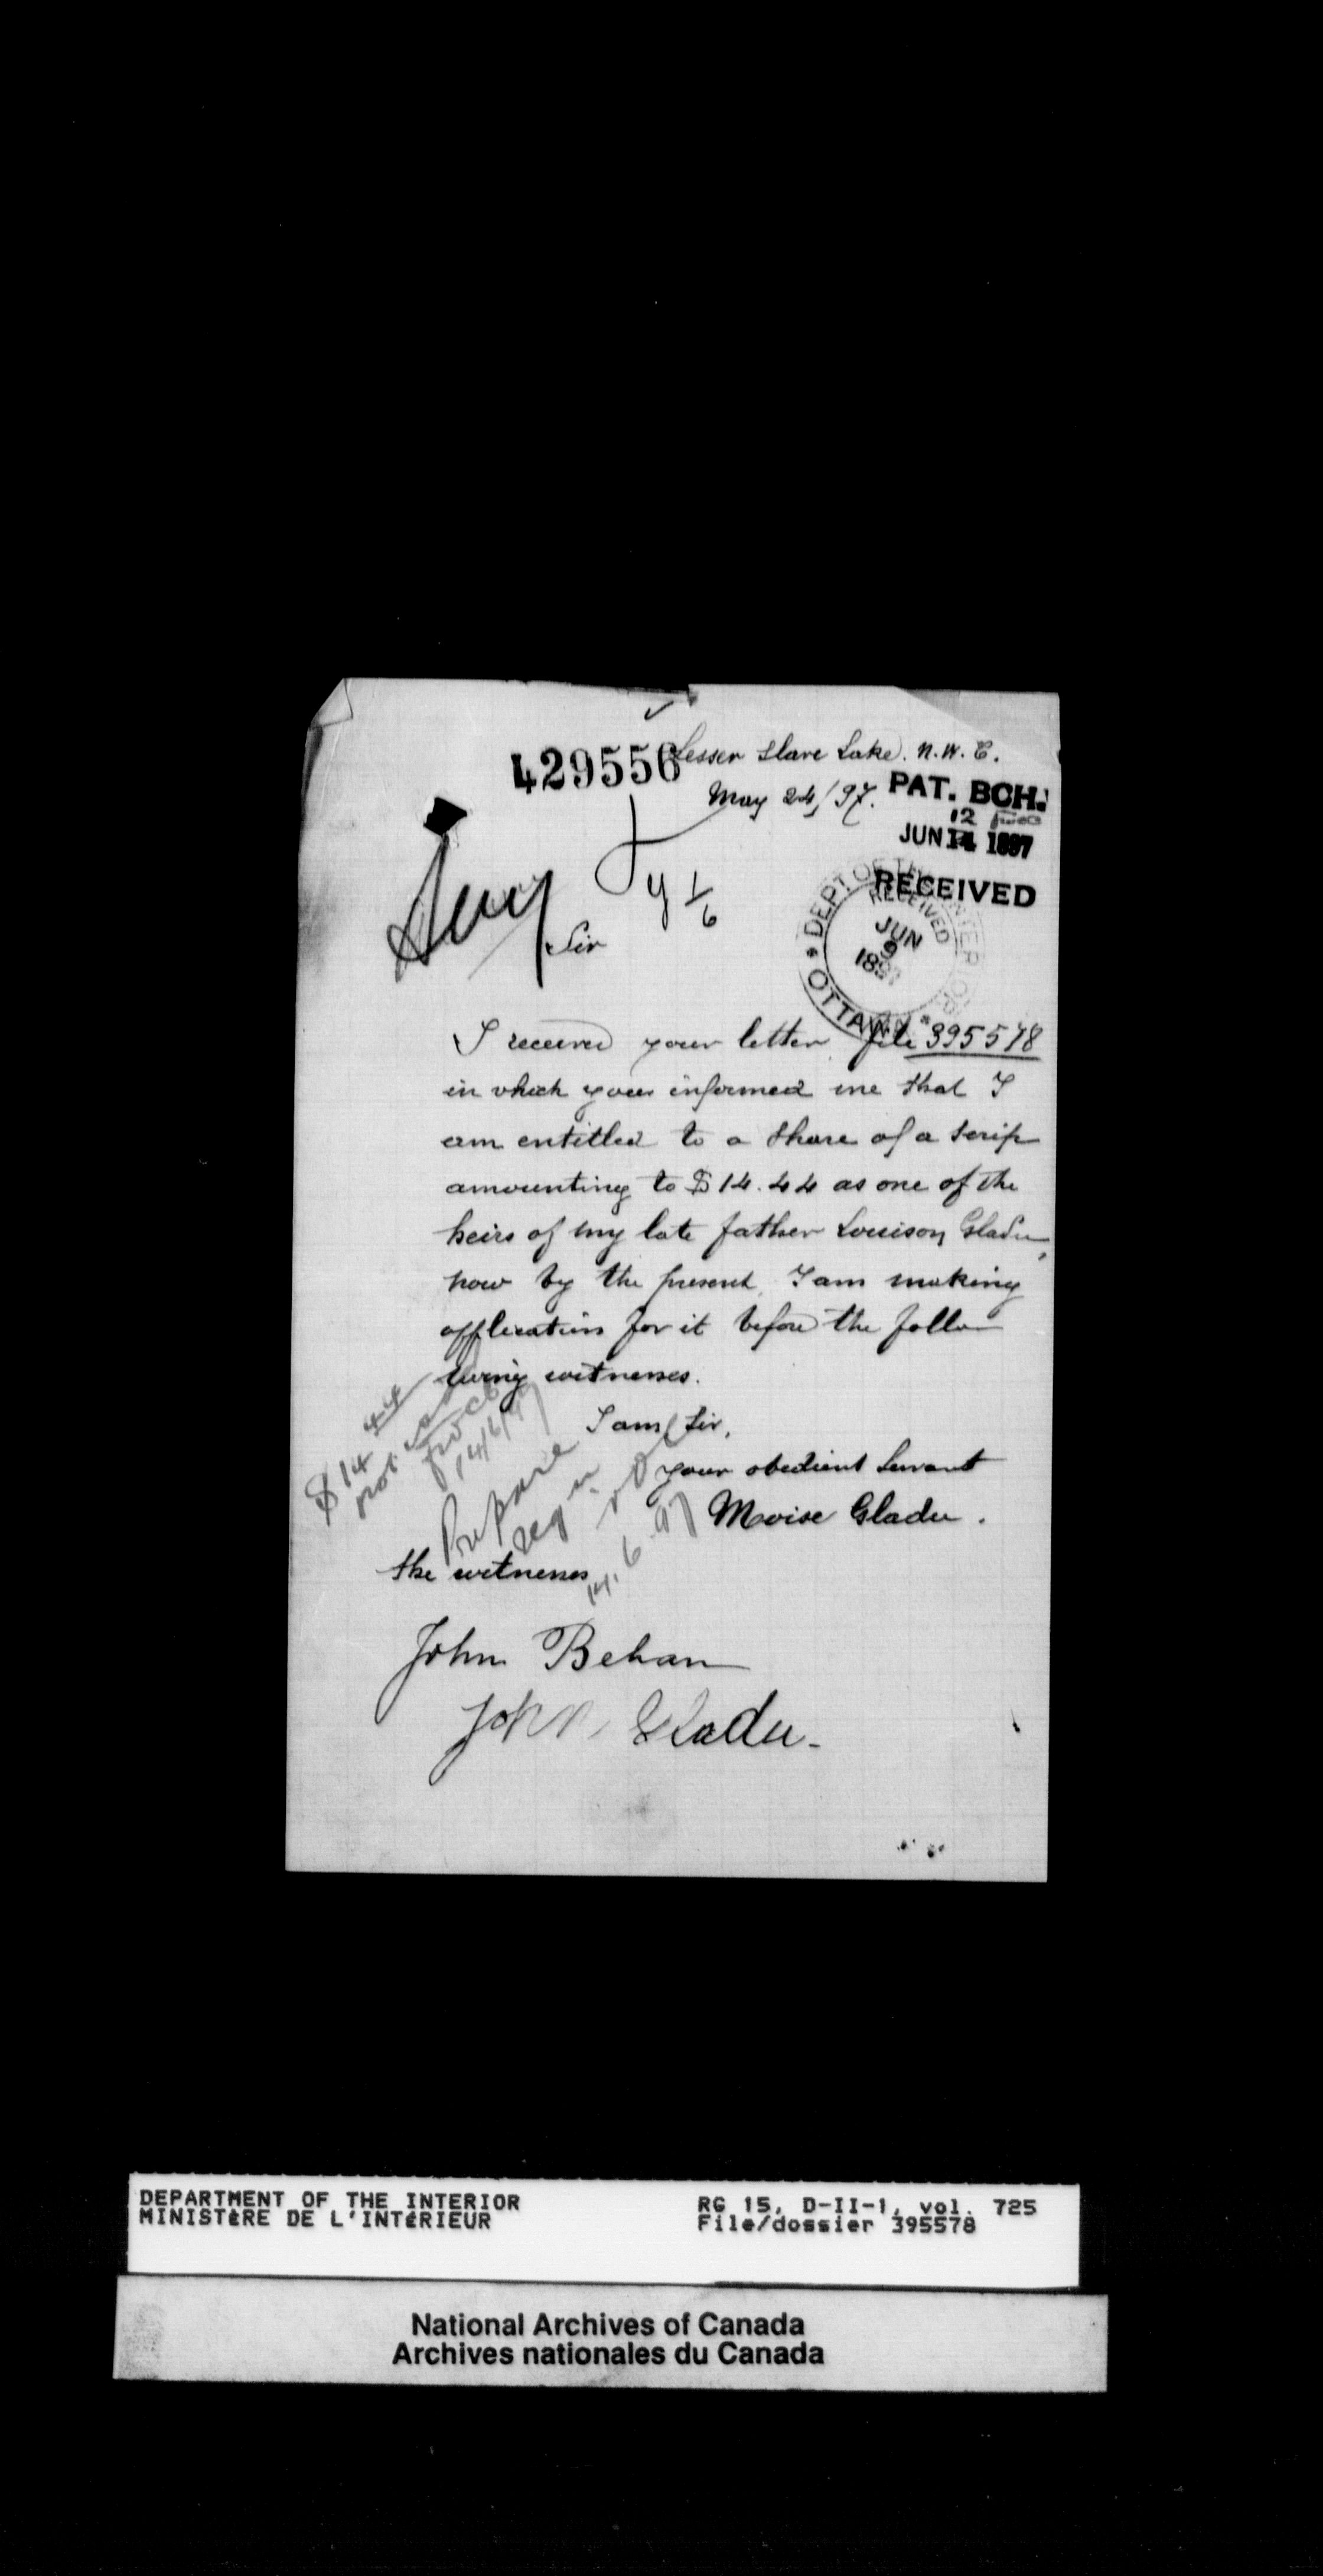 429556
Lesser Slave Lake. N.W.T.
May 24/97.
PAT. BCH.
12
JUN 14 1897
RECEIVED
DEPT. OF THE INTERIOR
RECEIVED
JUN
9
1897
* OTTAWA *
Sir
I received your letter file 395578
in which you informed me that I
am entitled to a share of a Scrip
amounting to $14.44 as one of the
heirs of my late father Louison Gladu,
now by the present, I am making
application for it before the follo
wing witnesses.
I am, Sir,
your obedient Servant
Moise Gladu.
$14 44
not
14/6/97
Prepare
14.6.97
the witnesses
John Behan
John Gladu.
DEPARTMENT OF THE INTERIOR
MINISTÈRE DE L'INTÉRIEUR
RG 15, D-II-1, vol. 725
File/dossier 395578
National Archives of Canada
Archives nationales du Canada